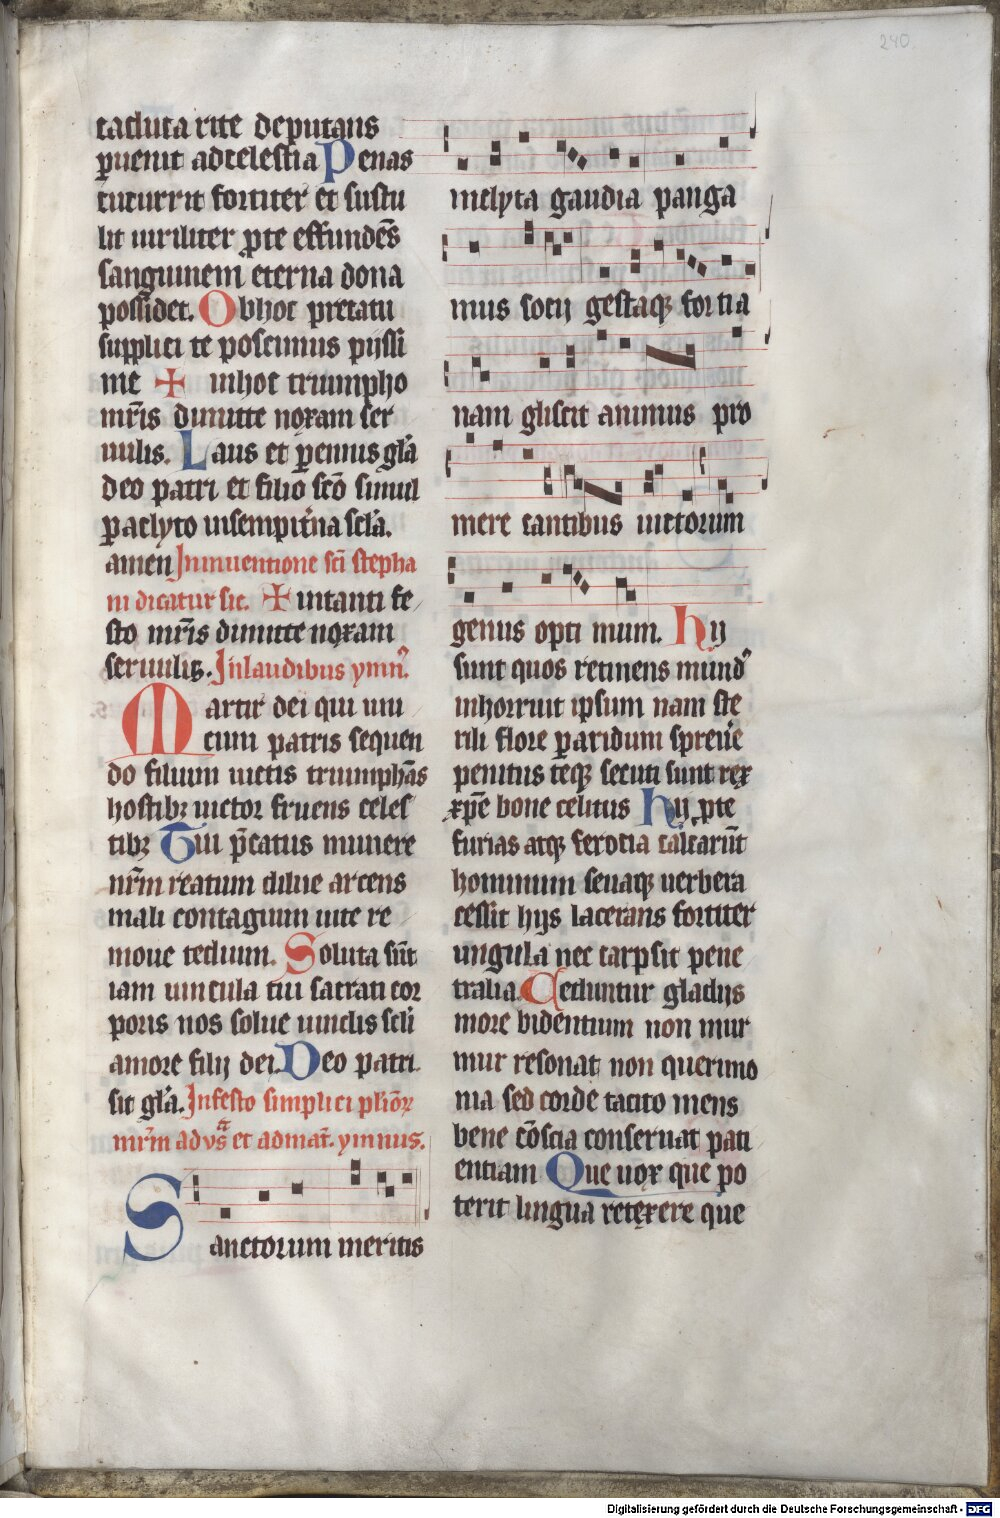 240
caduca rite deputans
ꝑuenit ad celestia Penas
cucurrit fortiter et sustu
lit uiriliter ꝓ te effundēs
sanguinem eterna dona
possidet. Ob hoc precatu
supplici te poscimus pijssi
me + in hoc triumpho
mr̄is dimitte noxam ser
uulis. Laus et ꝑennis gl̄a
deo patri et filio sc̄o simul
paclyto in sempit̄na scl̄a.
amen In inuentione sc̄i stepha
ni dicatur sic. + in tanti fe
sto mr̄is dimitte noxam
seruulis. In laudibus ymn᷒.
Martir dei qui uni
cum patris sequen
do filium uictis triumphās
hostibꝫ uictor fruens celes
tibꝫ Tui p̄catus munere
nr̄m reatum dilue arcens
mali contagium uite re
moue tedium. Soluta sūt
iam uincula tui sacrati cor
poris nos solue uinclis scl̄i
amore filij dei. Deo patri
sit gl̄a. In festo simplici pl̄ioꝝ
mr̄m ad vs̄ et ad mat̄. ymnus.
Sanctorum meritis
inclyta gaudia panga
mus socij gestaqꝫ fortia
nam gliscit animus pro
mere cantibus uictorum
genus optimum. Hij
sunt quos retinens mund᷒
inhorruit ipsum nam ste
rili flore ꝑaridum spreue
penitus teqꝫ secuti sunt rex
xp̄e bone celitus Hij ꝓ te
furias atqꝫ ferocia calcarūt
hominum seuaqꝫ uerbera
cessit hijs lacerans fortiter
ungula nec carpsit pene
tralia. Ceduntur gladijs
more bidentium non mur
mur resonat non querimo
nia sed corde tacito mens
bene cōscia conseruat pati
entiam Que uox que po
terit lingua retexere que
Digitalisierung gefördert durch die Deutsche Forschungsgemeinschaft - DFG